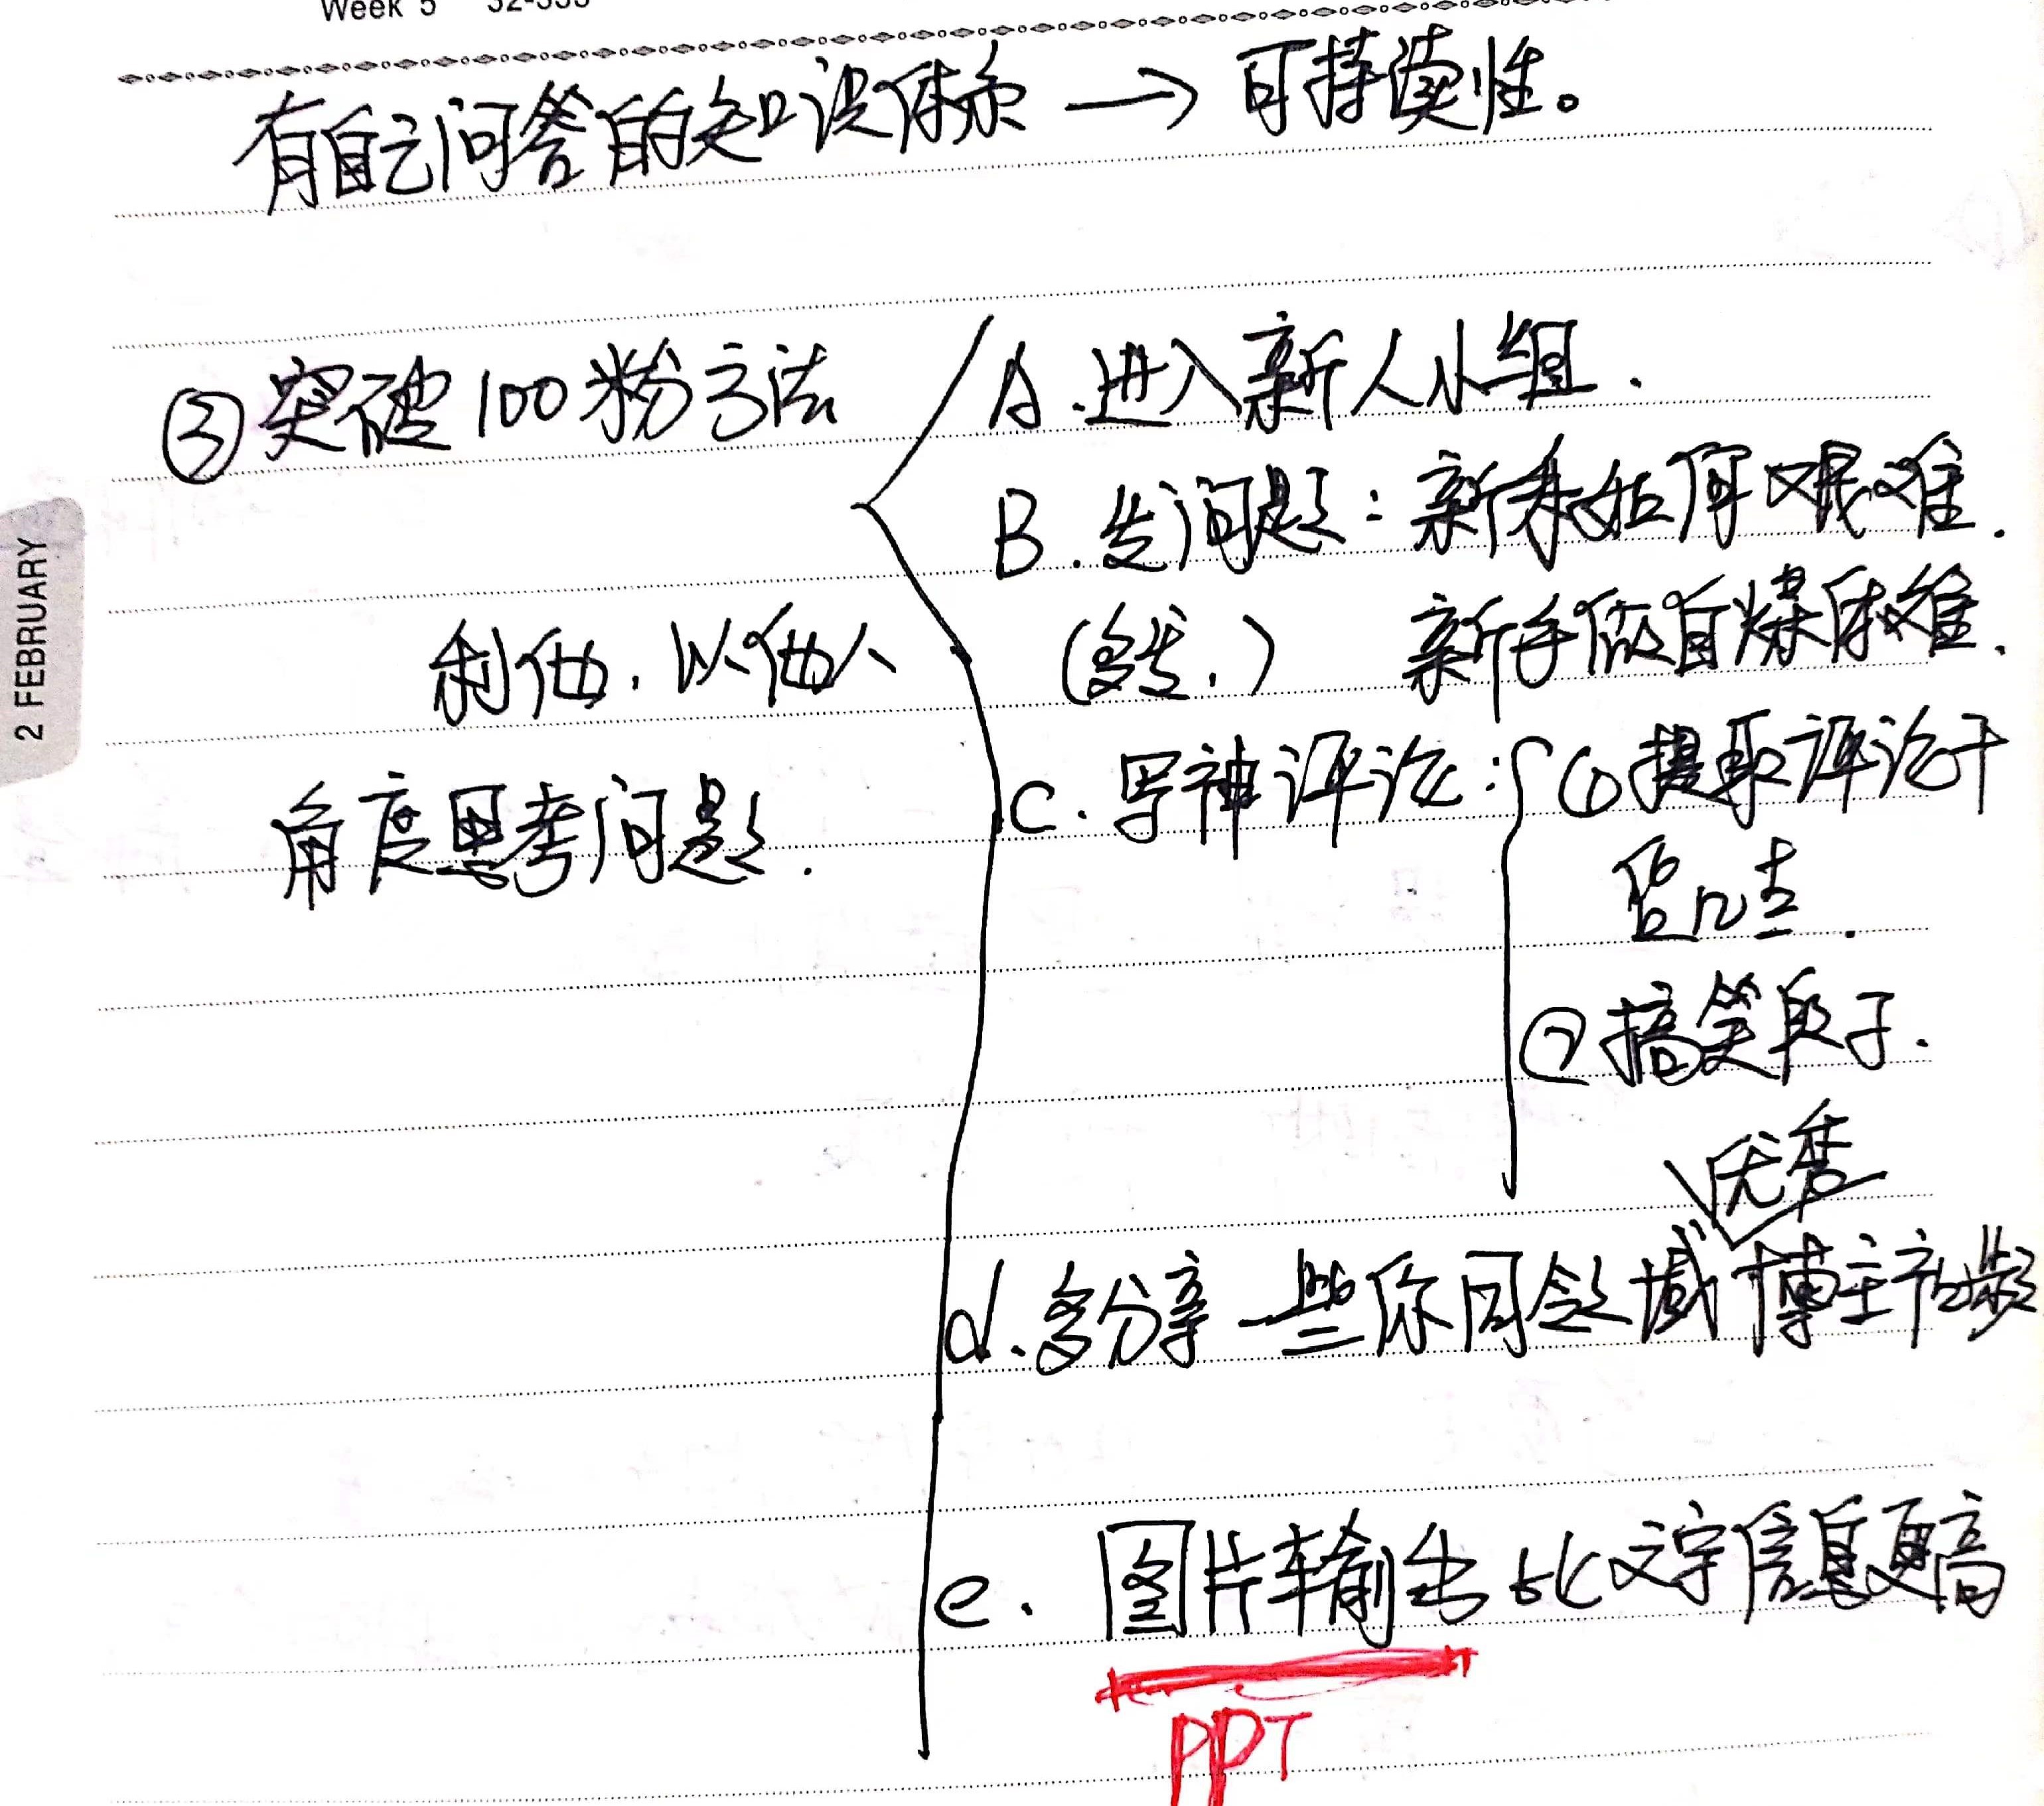 Week 5 32-333
有自己问答的知识体系 → 可持续性。
③突破100粉方法
利他.以他人
角度思考问题.
A.进入新人小组.
B.发问题:新来如何艰难.
(多发.) 新手做自媒体难.
C.写神评论:①提取评论干
货几走.
②搞笑段子.
优秀
d.多分享一些你同领域博主视频
e.图片输出比文字信息更高
PPT
2 FEBRUARY